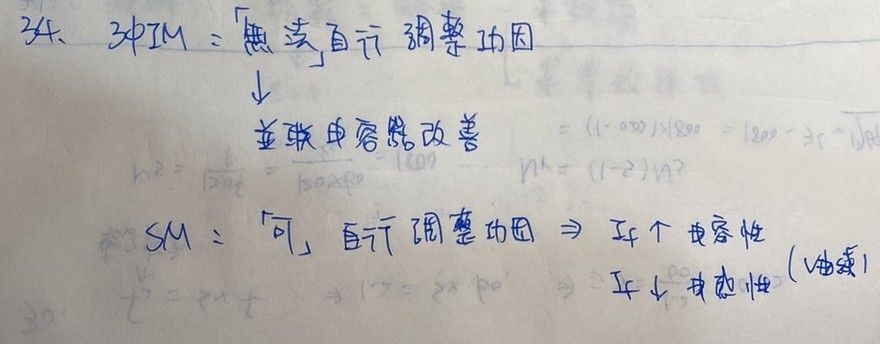 34、3φIM：「無法」自行調整功因
↓
並联电容器改善
SM：「可」自行調整功因 ⇒ If↑ 电容性
If↓ 电感性 (V曲線)